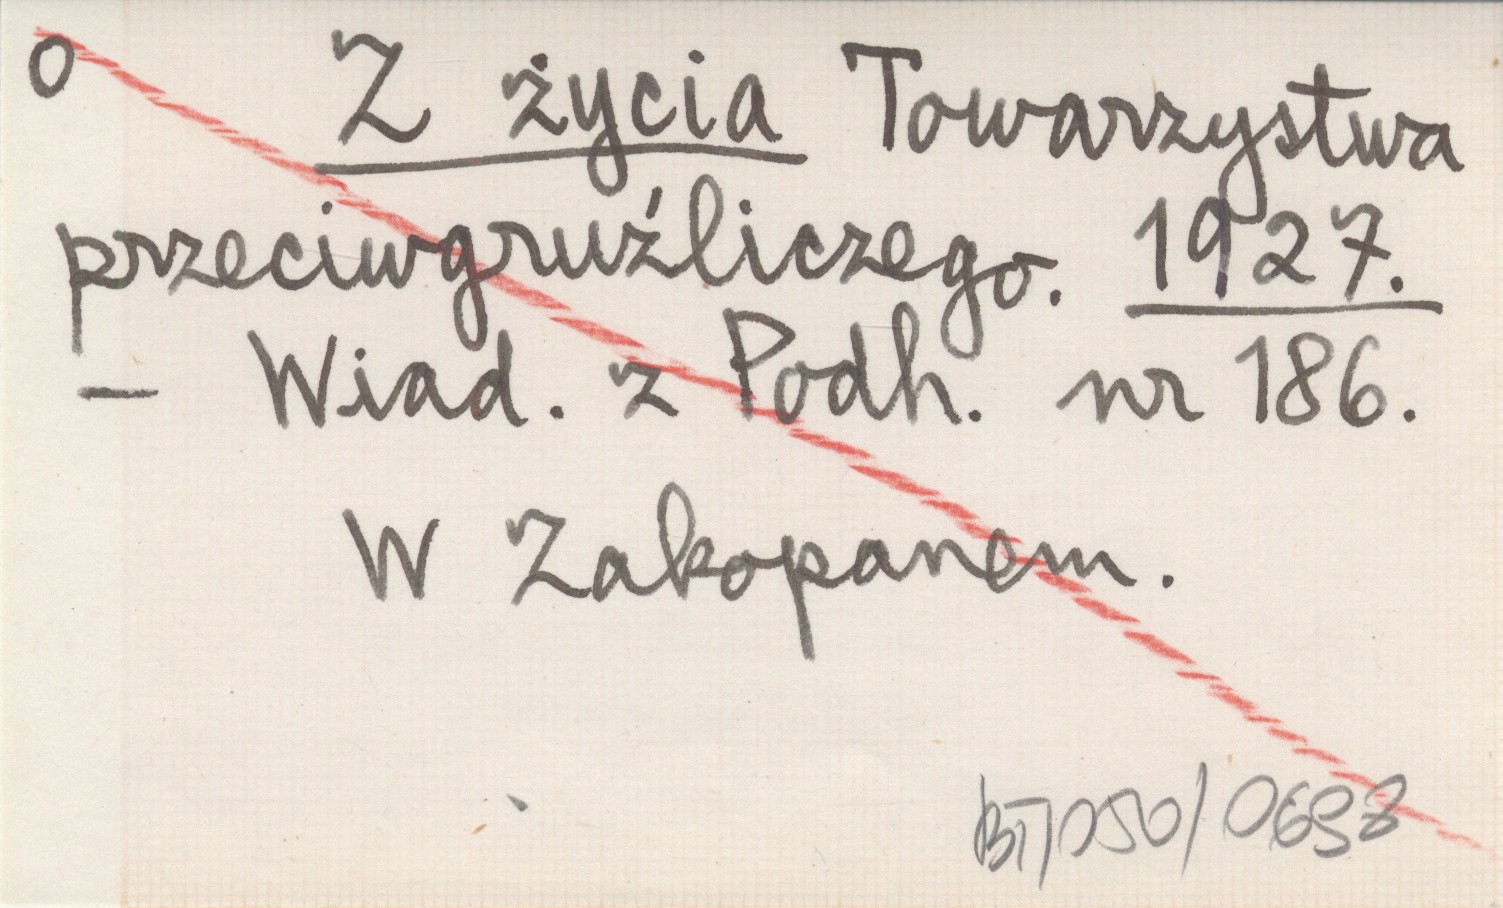 o Z życia Towarzystwa
przeciwgruźliczego. 1927.
– Wiad. z Podh. nr 186.
W Zakopanem.